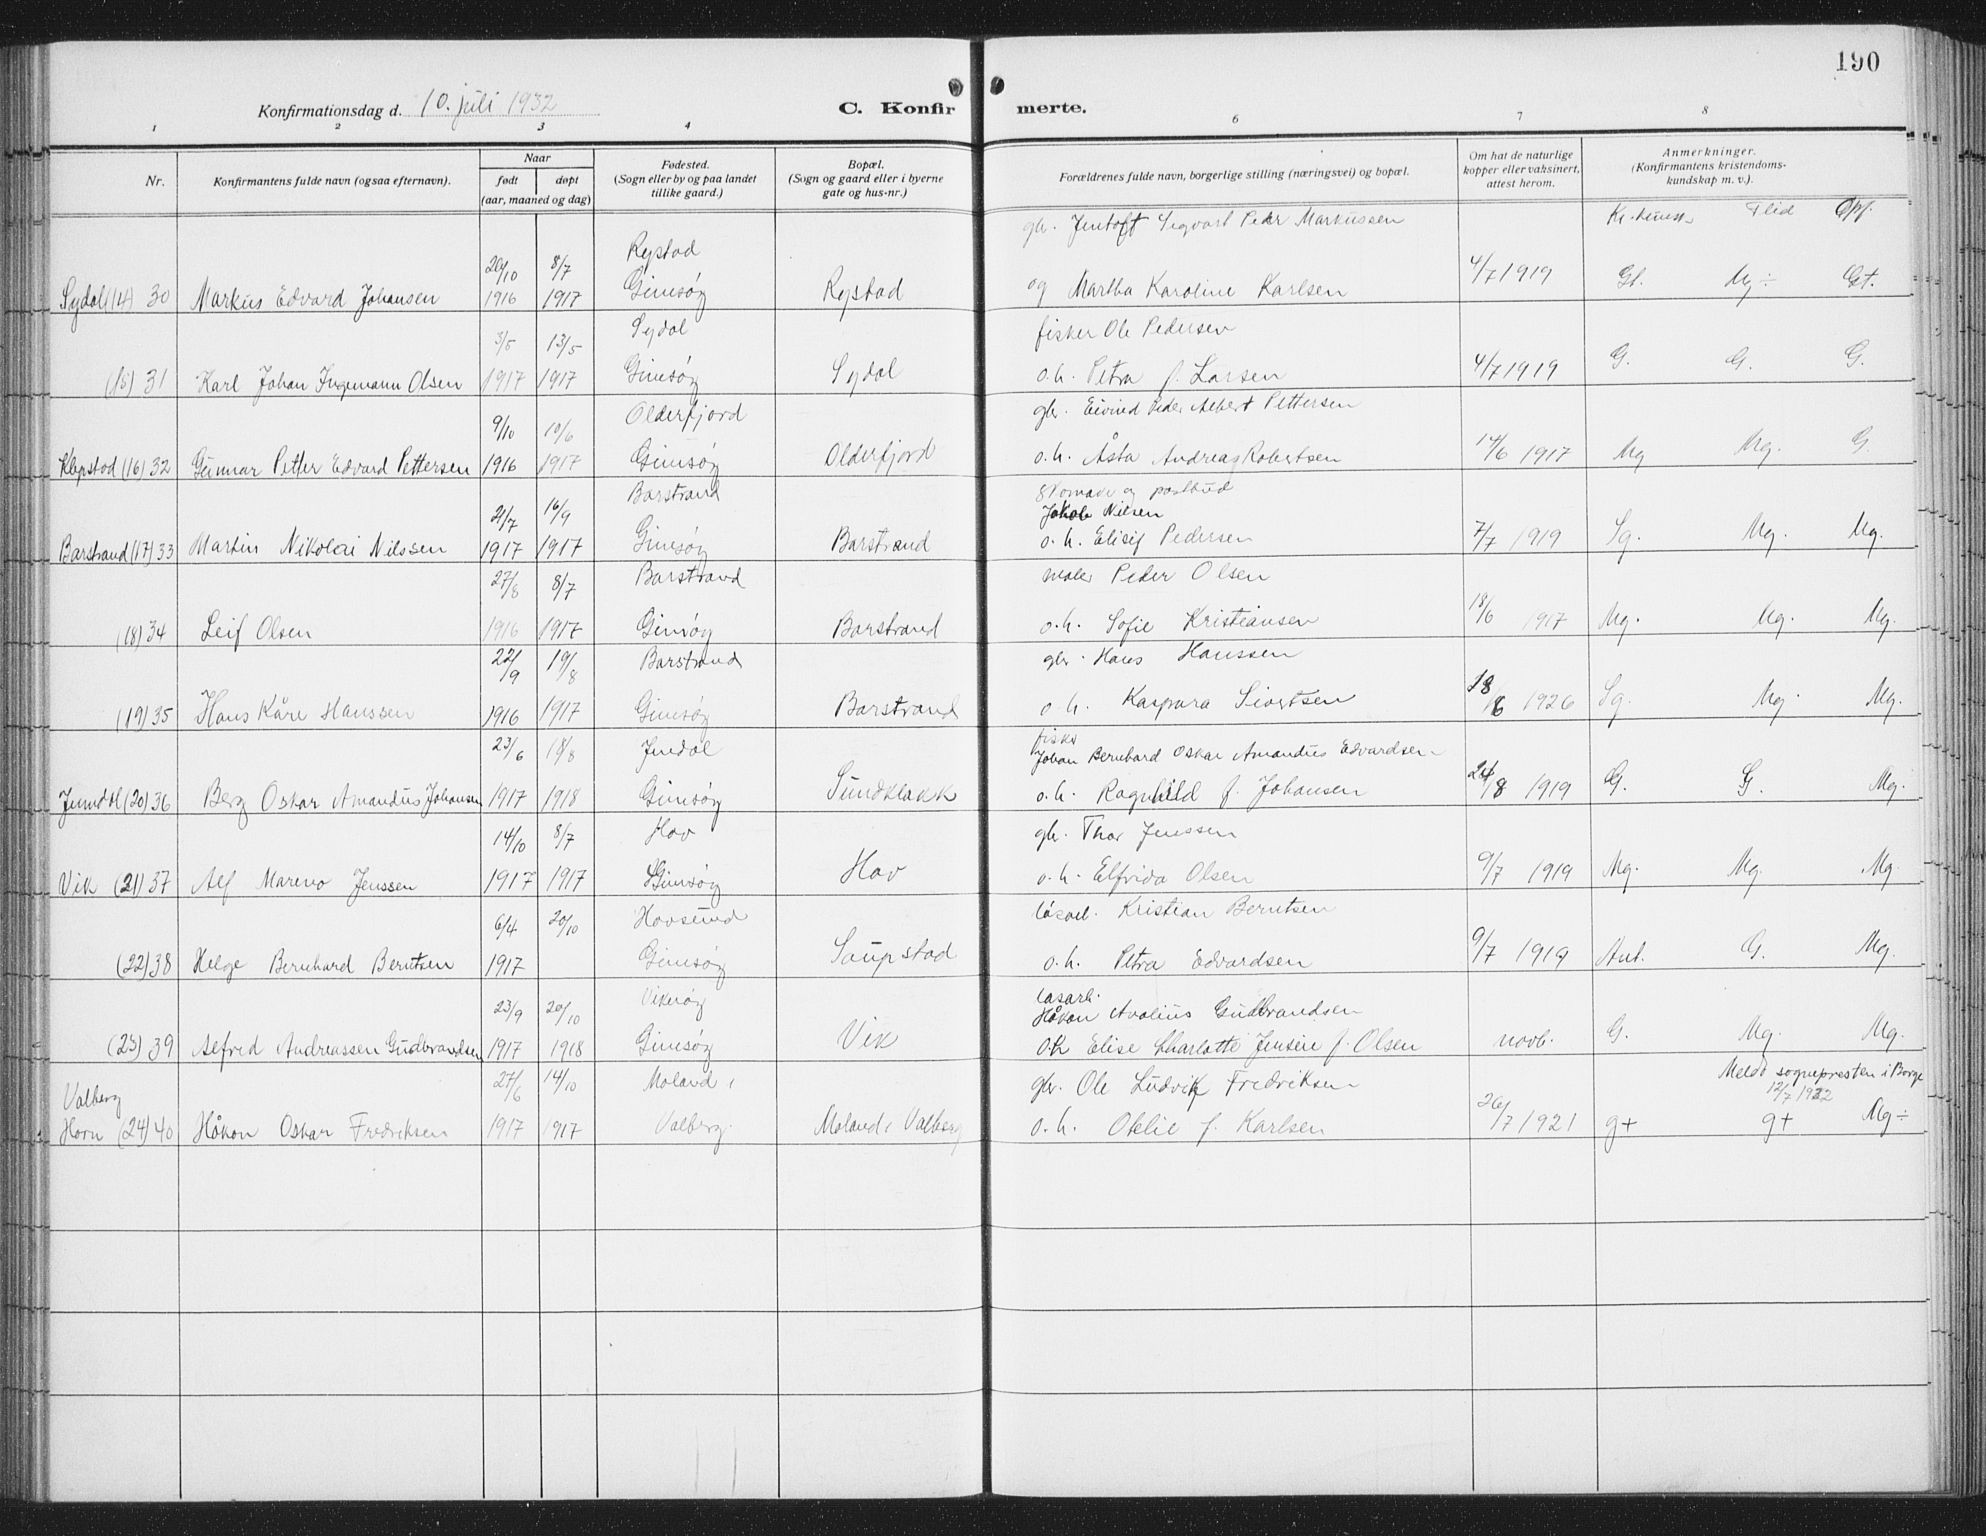 190
Konfirmationsdag d. 10. juli 1932
C. Konfirmerte.
1 2 3 4 6 7 8
Nr.
Konfirmantens fulde navn (ogsaa efternavn).
Naar
født
døpt
(aar, maaned og dag)
Fødested.
(Sogn eller by og paa landet
tillike gaard.)
Bopæl.
(Sogn og gaard eller i byerne
gate og hus-nr.)
Forældrenes fulde navn, borgerlige stilling (næringsvei) og bopæl.
Om hat de naturlige
kopper eller vaksinert,
attest herom.
Anmerkninger.
(Konfirmantens kristendoms-
kundskap m. v.).
Flid Opf.
20/10 8/7 Rystad gbr. Jentoft Sigvart Peder Markussen
Sydal (14) 30 Markus Edvard Johansen 1916 1917 Gimsøy Rystad og Martha Karoline Karlsen 4/7 1919 Gt. Mg÷ Gt.
3/5 13/5 Sydal fisker Ole Pedersen
(15) 31 Karl Johan Ingemann Olsen 1917 1917 Gimsøy Sydal o.h. Petra f. Larsen 4/7 1919 G. G. G.
9/10 10/6 Olderfjord gbr. Eivind Peder Albert Pettersen
Klepstad (16) 32 Gunnar Petter Edvard Pettersen 1916 1917 Gimsøy Olderfjord o.h. Åsta Andreas Robertsen 14/6 1917 Mg Mg. G.
21/7 16/9 Barstrand skomaker og postbud
Jakob Nilsen
Barstrand (17) 33 Martin Nikolai Nilssen 1917 1917 Gimsøy Barstrand o.h. Elisif Pedersen 7/7 1919 Sg. Mg. Mg.
27/8 8/7 Barstrand maler Peder Olsen
(18) 34 Leif Olsen 1916 1917 Gimsøy Barstrand o.h. Sofie Kristiansen 18/6 1917 Mg. Mg. Mg.
22/9 19/8 Barstrand gbr. Hans Hanssen
(19) 35 Hans Kåre Hanssen 1916 1917 Gimsøy Barstrand o.h. Kaspara Sivertsen 18/6 1926 Sg. Mg. Mg.
23/6 18/8 Jendal fisker
Johan Bernhard Oskar Amandus Edvardsen
Jenndal (20) 36 Berg Oskar Amandus Johansen 1917 1918 Gimsøy Sundklakk o.h. Ragnhild f. Johansen 24/8 1919 G. G. Mg.
14/10 8/7 Hov gbr. Thor Jenssen
Vik (21) 37 Alf Mareno Jenssen 1917 1917 Gimsøy Hov o.h. Elfrida Olsen 9/7 1919 Mg. Mg. Mg.
6/4 20/10 Hovsund løsarb. Kristian Berntsen
(22) 38 Helge Bernhard Berntsen 1917 Gimsøy Saupstad o.h. Petra Edvardsen 9/7 1919 Ant. G. Mg.
23/9 20/10 Vikerøy løsarb.
Håkon Avolius Gudbrandsen
(23) 39 Alfred Andreassen Gudbrandsen 1917 1918 Gimsøy Vik o.h Elise Charlotte Jensine f. Olsen novb. G. Mg. Mg.
Valberg 27/6 14/10 Moland i gbr. Ole Ludvik Fredriksen Meldt sognepresten i Borge
12/7 1932
Horn (24) 40 Håkon Oskar Fredriksen 1917 1917 Valberg. Moland i Valberg o.h. Oklie f. Karlsen 26/7 1921 g+ g+ Mg÷